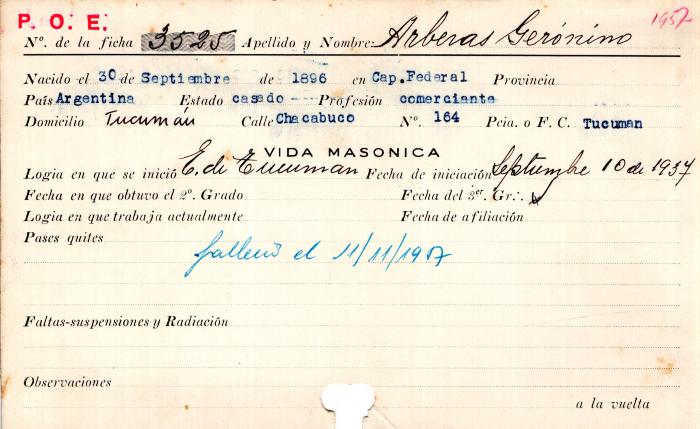 P. O. E. 1957
Nº. de la ficha 3525 Apellido y Nombre: Arberas Gerónimo
Nacido el 30 de Septiembre de 1896 en Cap.Federal Provincia
País Argentina Estado casado --- Profesión comerciante
Domicilio Tucumán Calle Chacabuco Nº. 164 Pcia. o F. C. Tucuman
VIDA MASONICA
Logia en que se inició E. de Tucuman Fecha de iniciación Septiembre 10 de 1937
Fecha en que obtuvo el 2º. Grado Fecha del 3er. Gr∴
Logia en que trabaja actualmente Fecha de afiliación
Pases quites
falleció el 11/11/1957
Faltas-suspensiones y Radiación
Observaciones
a la vuelta